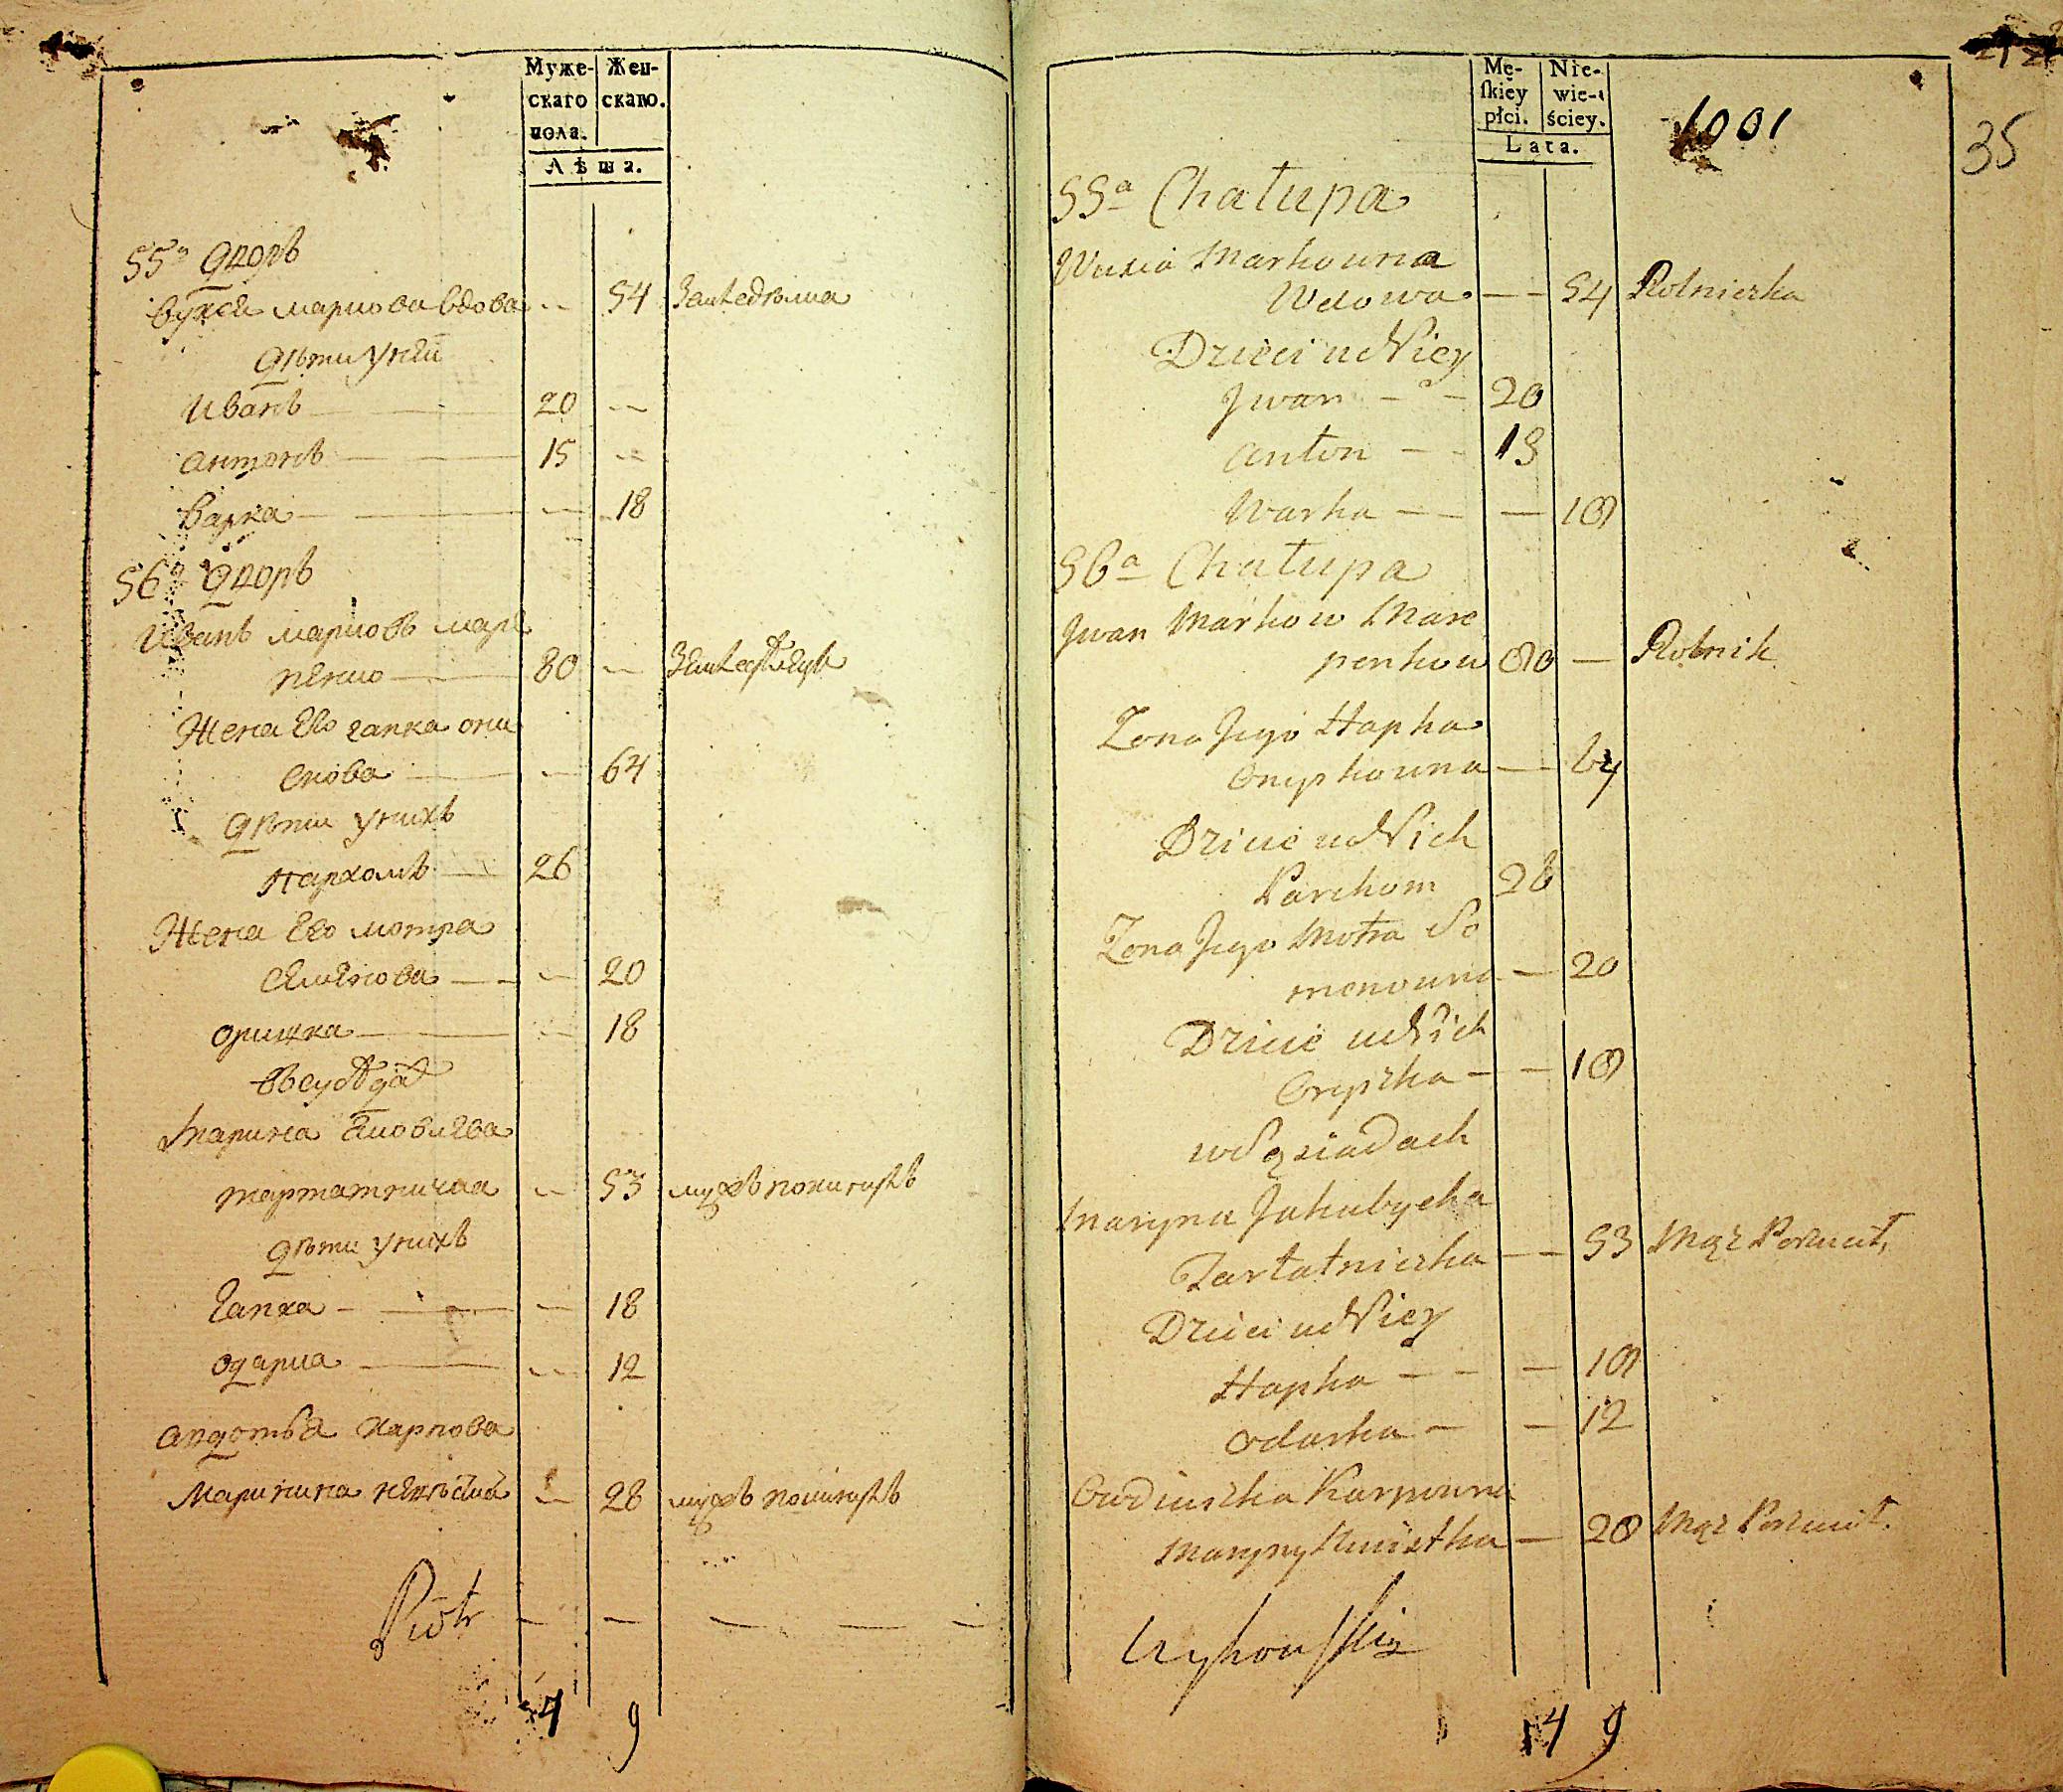 Муже-
скаго
пола.
Жен-
скаго.
Лѣта.
55й дворъ
вукся маркова вдова -- 54 Земледѣлка
дѣти у ней
иванъ 20 --
антонъ 15 --
варка -- 18
56й дворъ
иванъ марковъ мар
пенко 80 -- Земледѣлецъ
Жена его гапка они
скова -- 64
дѣти у нихъ
пархомъ 26
Жена его мотра
семенова -- 20
оришка -- 18
въ сусѣдѣхъ
марина
-- 53 мужъ покинулъ
дѣти у нихъ
гапка -- 18
одарка -- 12
авдотья карпова
маринина невѣстка -- 28 мужъ покинулъ
Piotr
4 9
Mę-
ſkiey
płci.
Nie-
wie-
ściey.
Lata.
1001
35
55a Chałupa
Wuxia Markowna
Wdowa -- 54 Rolniczka
Dzieci u Niey
Jwan -- 20
Anton -- 15
Warka -- 18
56a Chałupa
Jwan Markow Mare
penkow 80 — Rolnik
Zona Jego Hapka
Onyskowna -- 64
Dzieci u Nich
Parchom 26
Zona Jego Motra Se
menowna — 20
Dzieci u Nich
Oryszka -- 18
w Sąsiadach
Maryna Jakubycha
Tartatniczka -- 53 Mąż Porzucił,
Dzieci u Niey
Hapka -- 18
Odarka -- 12
Owdiuszka Karpowna
Maryny Newistka — 28 Mąż Porzucił.
4 9